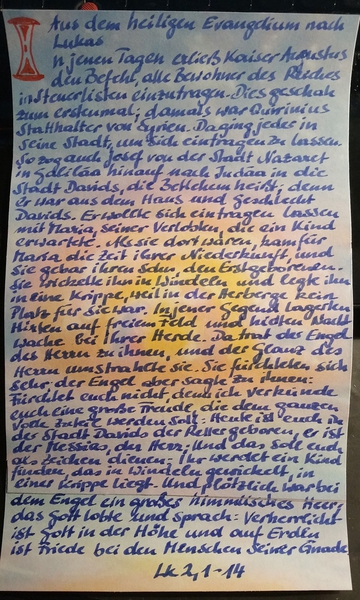 Aus dem heiligen Evangelium nach
Lukas
In jenen Tagen erließ Kaiser Augustus
den Befehl, alle Bewohner des Reiches
in Steuerlisten einzutragen. Dies geschah
zum erstenmal; damals war Quirinius
Statthalter von Syrien. Da ging jeder in
seine Stadt, um sich eintragen zu lassen.
So zog auch Josef von der Stadt Nazaret
in Galiläa hinauf nach Judäa in die
Stadt Davids, die Betlehem heißt; denn
er war aus dem Haus und Geschlecht
Davids. Er wollte sich eintragen lassen
mit Maria, seiner Verlobten, die ein Kind
erwartete. Als sie dort waren, kam für
Maria die Zeit ihrer Niederkunft, und
sie gebar ihren Sohn, den Erstgeborenen.
Sie wickelte ihn in Windeln und legte ihn
in eine Krippe, weil in der Herberge kein
Platz für sie war. In jener Gegend lagerten
Hirten auf freiem Feld und hielten Nacht-
wache bei ihrer Herde. Da trat des Engel
des Herrn zu ihnen, und der Glanz des
Herrn umstrahlte sie. Sie fürchteten sich
sehr, der Engel aber sagte zu ihnen:
Fürchtet euch nicht, denn ich verkünde
euch eine große Freude, die dem ganzen
Volk zuteil werden soll: Heute ist euch in
der Stadt Davids der Retter geboren, er ist
der Messias, der Herr. Und das soll euch
als Zeichen dienen: Ihr werdet ein Kind
finden, das in Windeln gewickelt, in
einer Krippe liegt. Und plötzlich war bei
dem Engel ein großes himmlisches Heer,
das Gott lobte und sprach: Verherrlicht
ist Gott in der Höhe und auf Erden
ist Friede bei den Menschen seiner Gnade
Lk 2, 1-14